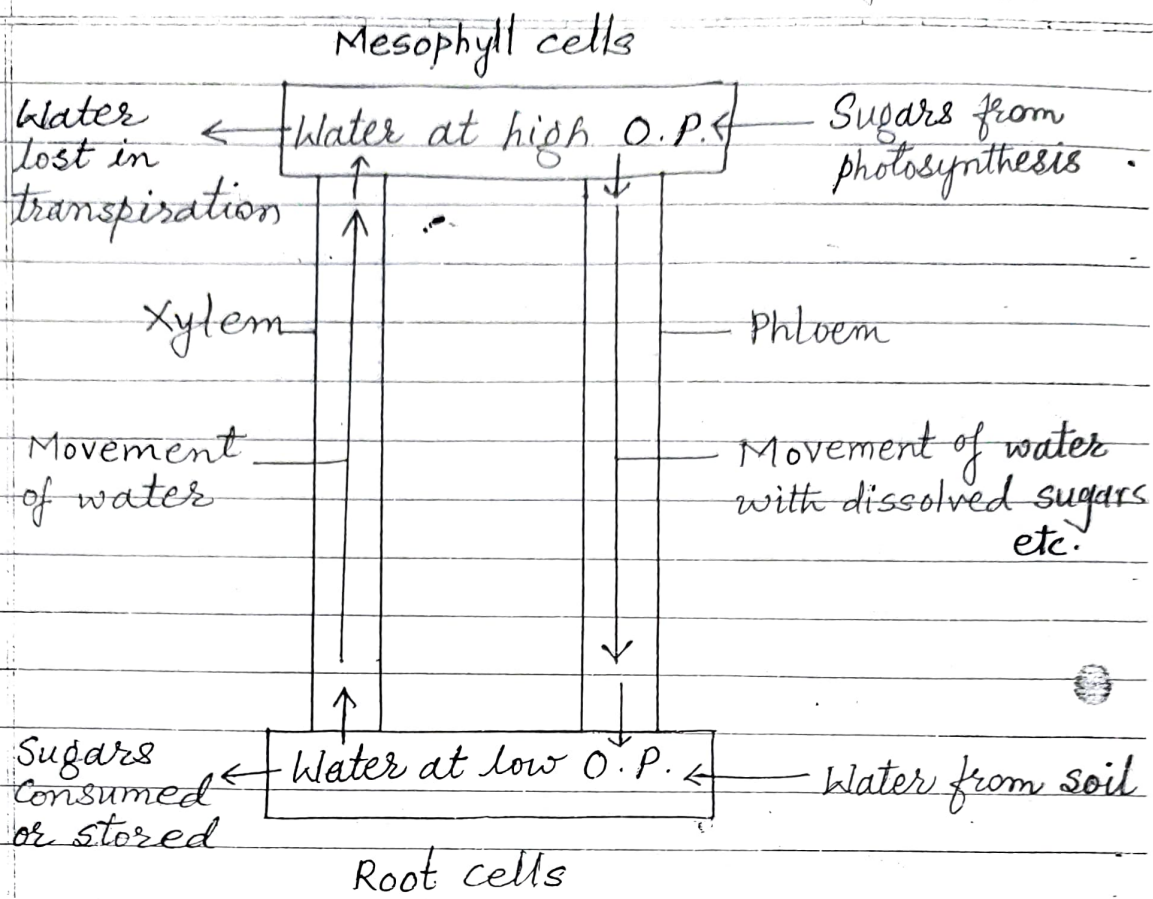 Mesophyll cells
Water
lost in
transpiration
Water at high O.P.
Sugars from
photosynthesis
Xylem
Phloem
Movement
of water
Movement of water
with dissolved sugars
etc.
Sugars
Consumed
or stored
Water at low O.P.
Water from soil
Root cells